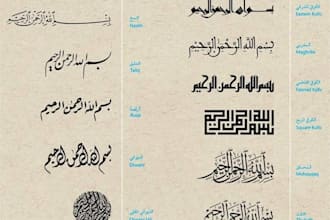 بسم الله الرحمن الرحيم
النسخ
Naskh
بسم الله الرحمن الرحيم
Taliq
بسم الله الرحمن الرحيم
الرقعة
Ruqa
بسم الله الرحمن الرحيم
الديواني
Diwani
بسم الله الرحمن الرحيم
الكوفي المشرقي
Eastern Kufic
بسم الله الرحمن الرحيم
Maghribi
بسم الله الرحمن الرحيم
الكوفي الفاطمي
Fatimid Kufic
بسم الله الرحمن الرحيم
الكوفي المربع
Square Kufic
بسم الله الرحمن الرحيم
المحقق
Muhaqqaq
بسم الله الرحمن الرحيم